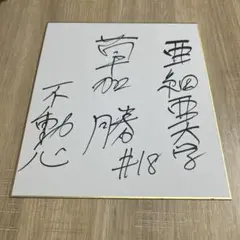 亜細亜大学
草加 勝
#18
不動心